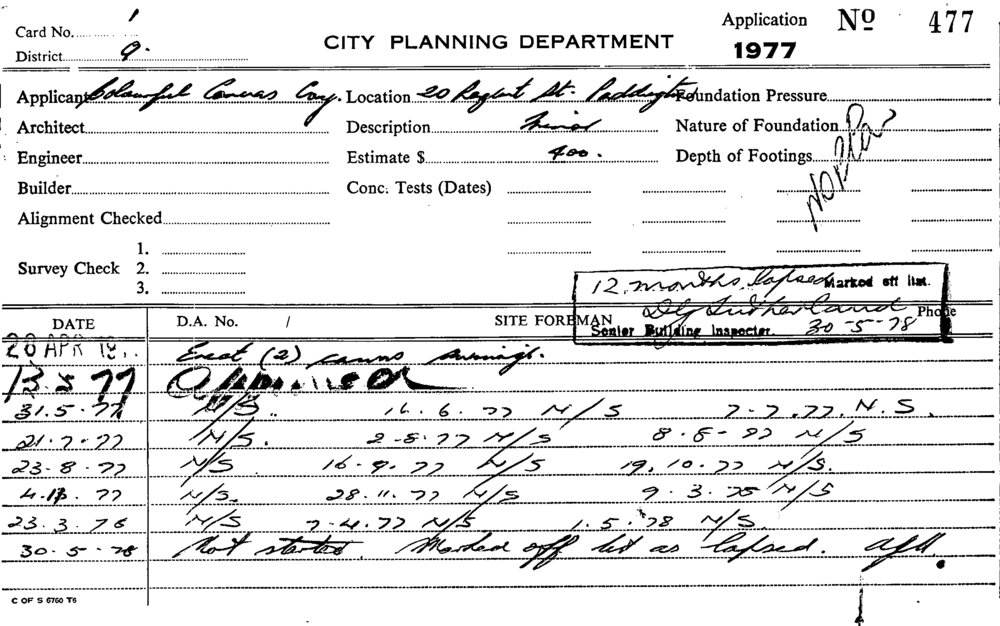 Card No. 1
District 9.
CITY PLANNING DEPARTMENT
Application No 477
1977
Applicant Colourful Canvas Coy. Location 20 Regent St. Paddington Foundation Pressure
Architect Description Minor Nature of Foundation
Engineer Estimate $ 400. Depth of Footings
NO PLAN
Builder Conc. Tests (Dates)
Alignment Checked
1.
Survey Check 2.
3.
12 months lapsed Marked off list.
Sutherland
Senior Building Inspector. 30-5-78
DATE D.A. No. / SITE FOREMAN Phone
20 APR 19 Erect (2) canvas awnings.
13.5 77 Approved
31.5.77 N/S. 16.6.77 N/S 7-7.77. N.S.
21-7-77 N/S. 2-8-77 N/S 8-8-77 N/S
23-8-77 N/S 16-9.77 N/S 19.10.77 N/S.
4.11.77 N/S. 28.11.77 N/S 9.3.78 N/S
23.3.78 N/S 7-4.77 N/S 1.5.78 N/S.
30-5-78 Not started. Marked off list as lapsed.
C OF S 6760 T6